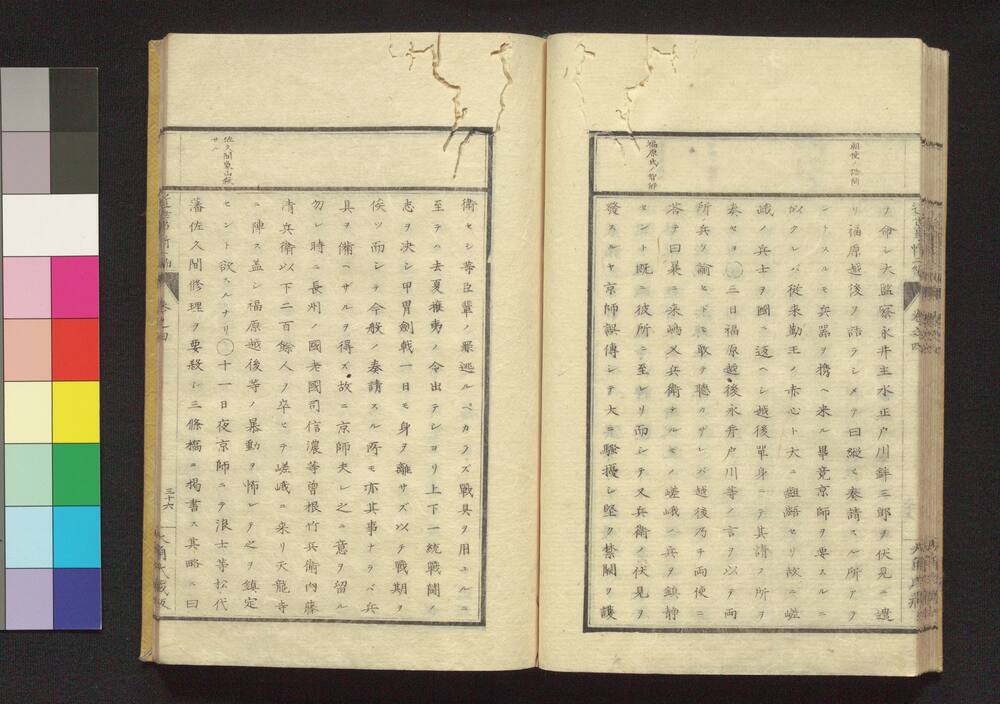 朝使ノ陰閉
福原氏ノ智辯
ヲ命シ大監察永井主水正戸川鉡三郎ヲ伏見ニ遣
リ福原越後ヲ詰ラシメテ曰縦モ奏請スル所アラ
ントスルモ兵器ヲ携ヘ来ル畢竟京師ヲ要スルニ
似タレバ従来勤王ノ赤心ト大ニ齟齬セリ故ニ嵯
峨ノ兵士ヲ國ニ返ヘシ越後單身ニテ其請フ所ヲ
奏セヨ○三日福原越後永井戸川等ノ言ヲ以テ両
所ノ兵ヲ諭セドモ敢テ聴カザレバ越後乃チ両使ニ
答テ曰暴ニ来嶋又兵衛ナルモノ嵯峨ノ兵ヲ鎮静
セント既ニ彼所ニ至レリ而シテ又兵衛ノ伏見ヲ
發スルヤ京師誤傳シテ大ニ騒擾シ堅ク禁闕ヲ護
佐久間象山殺
サル
衛セシ等臣輩ノ罪逃ルベカラズ戰具ヲ用ユルニ
至テハ去夏攘夷ノ令出テシヨリ上下一統戰鬪ノ
志ヲ决シ甲冑劍戟一日モ身ヲ離サズ以テ戰期ヲ
俟ツ而シテ今般ノ奏請スル所モ亦其事ナラバ兵
具ヲ備ヘザルヲ得ズ故ニ京師夫レ之ニ意ヲ留ル
勿レ時ニ長州ノ國老國司信濃等曽根竹兵衛内藤
清兵衛以下二百餘人ヲ卒ヒテ嵯峨ニ来リ天龍寺
ニ陣ス盖シ福原越後等ノ暴動ヲ怖レテ之ヲ鎮定
セント欲スルナリ○十一日夜京師ニテ浪士等松代
藩佐久間修理ヲ要殺シ三條橋ニ掲書ス其略ニ曰
三十六